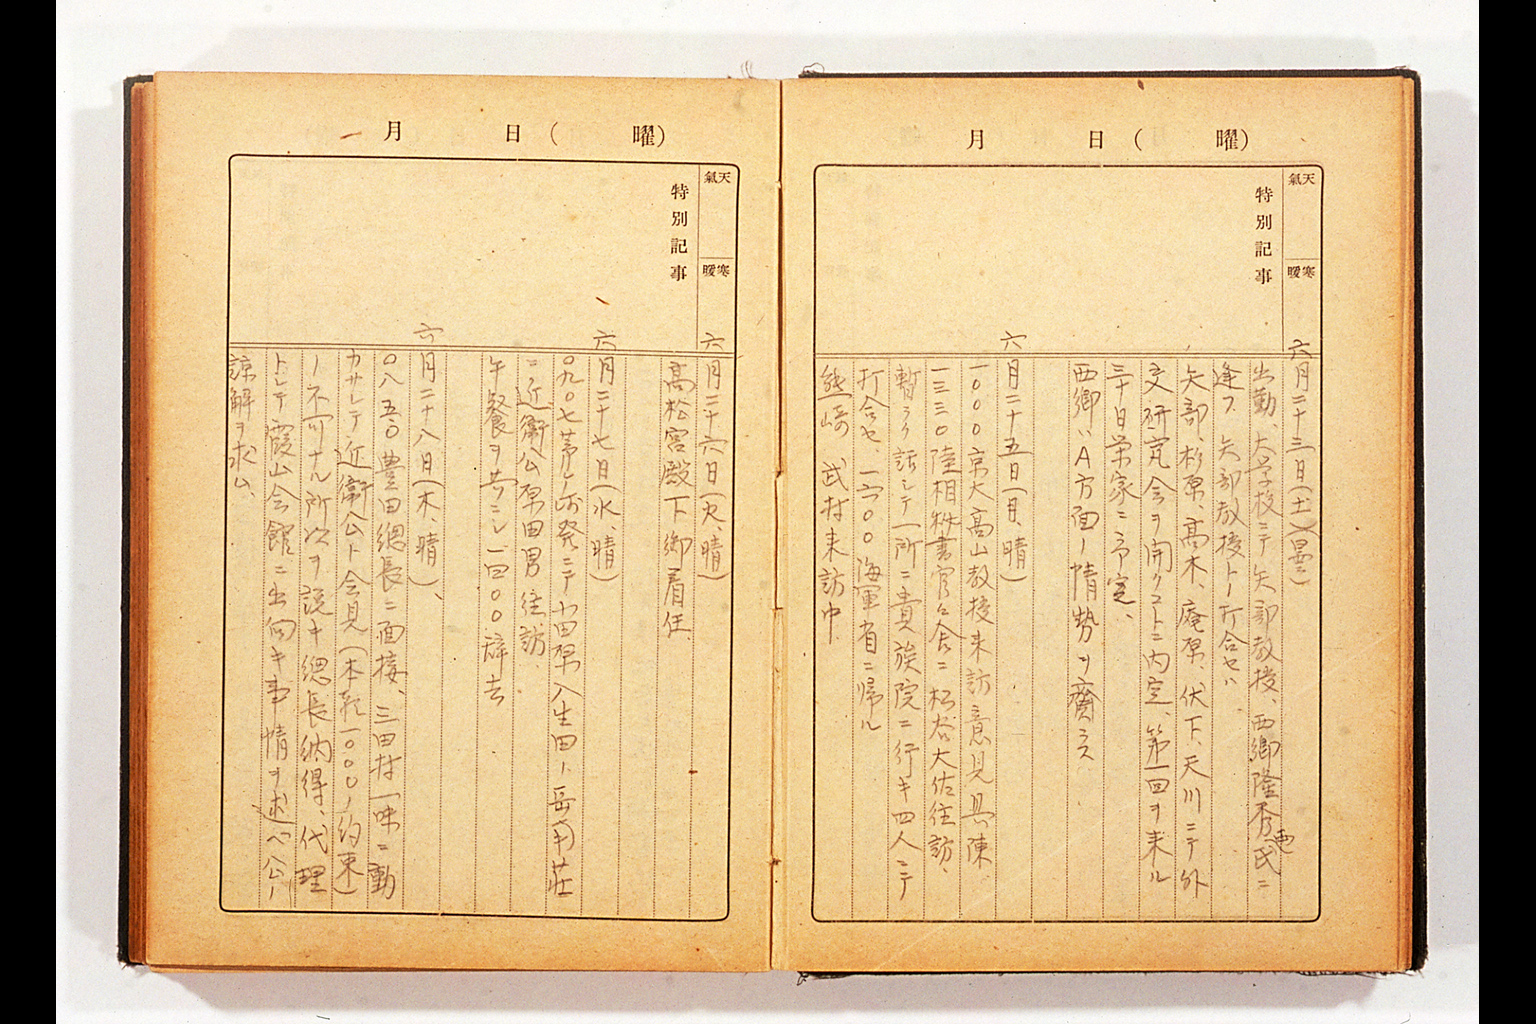 月　日（　曜）
天氣
寒暖
特別記事
六月二十三日（土）（曇）
出勤、大学校ニテ矢部教授、西郷隆秀氏ニ
逢フ　矢部教授ト打合セハ
矢部、杉原、高木、庵原、伏下、天川ニテ外
交研究会ヲ開クコトニ内定、第一回ヲ来ル
三十日栄家ニ予定、
西郷ハA方面ノ情勢ヲ齎ラス
六月二十五日（月、晴）
一〇〇〇京大高山教授来訪意見具陳、
一三三〇陸相秘書官々舎ニ松谷大佐往訪、
暫ラク話シテ一所ニ貴族院ニ行キ四人ニテ
打合セ、一六〇〇海軍省ニ帰ル
熊崎、武村来訪中
月　日（　曜）
天氣
寒暖
特別記事
六月二十六日（火、晴）
高松宮殿下御着任
六月二十七日（水、晴）
〇九〇七茅ヶ崎発ニテ小田原入生田ノ岳南荘
ニ近衛公原田男往訪、
午餐ヲ共ニシ一四〇〇辞去
六月二十八日（木、晴）、
〇八五〇豊田總長ニ面接、三田村一味ニ動
カサレテ近衛公ト会見（本朝一〇〇〇ノ約束）
ノ不可ナル所以ヲ説キ總長納得、代理
トシテ霞山会館ニ出向キ事情ヲ述ベ公ノ
諒解ヲ求ム、